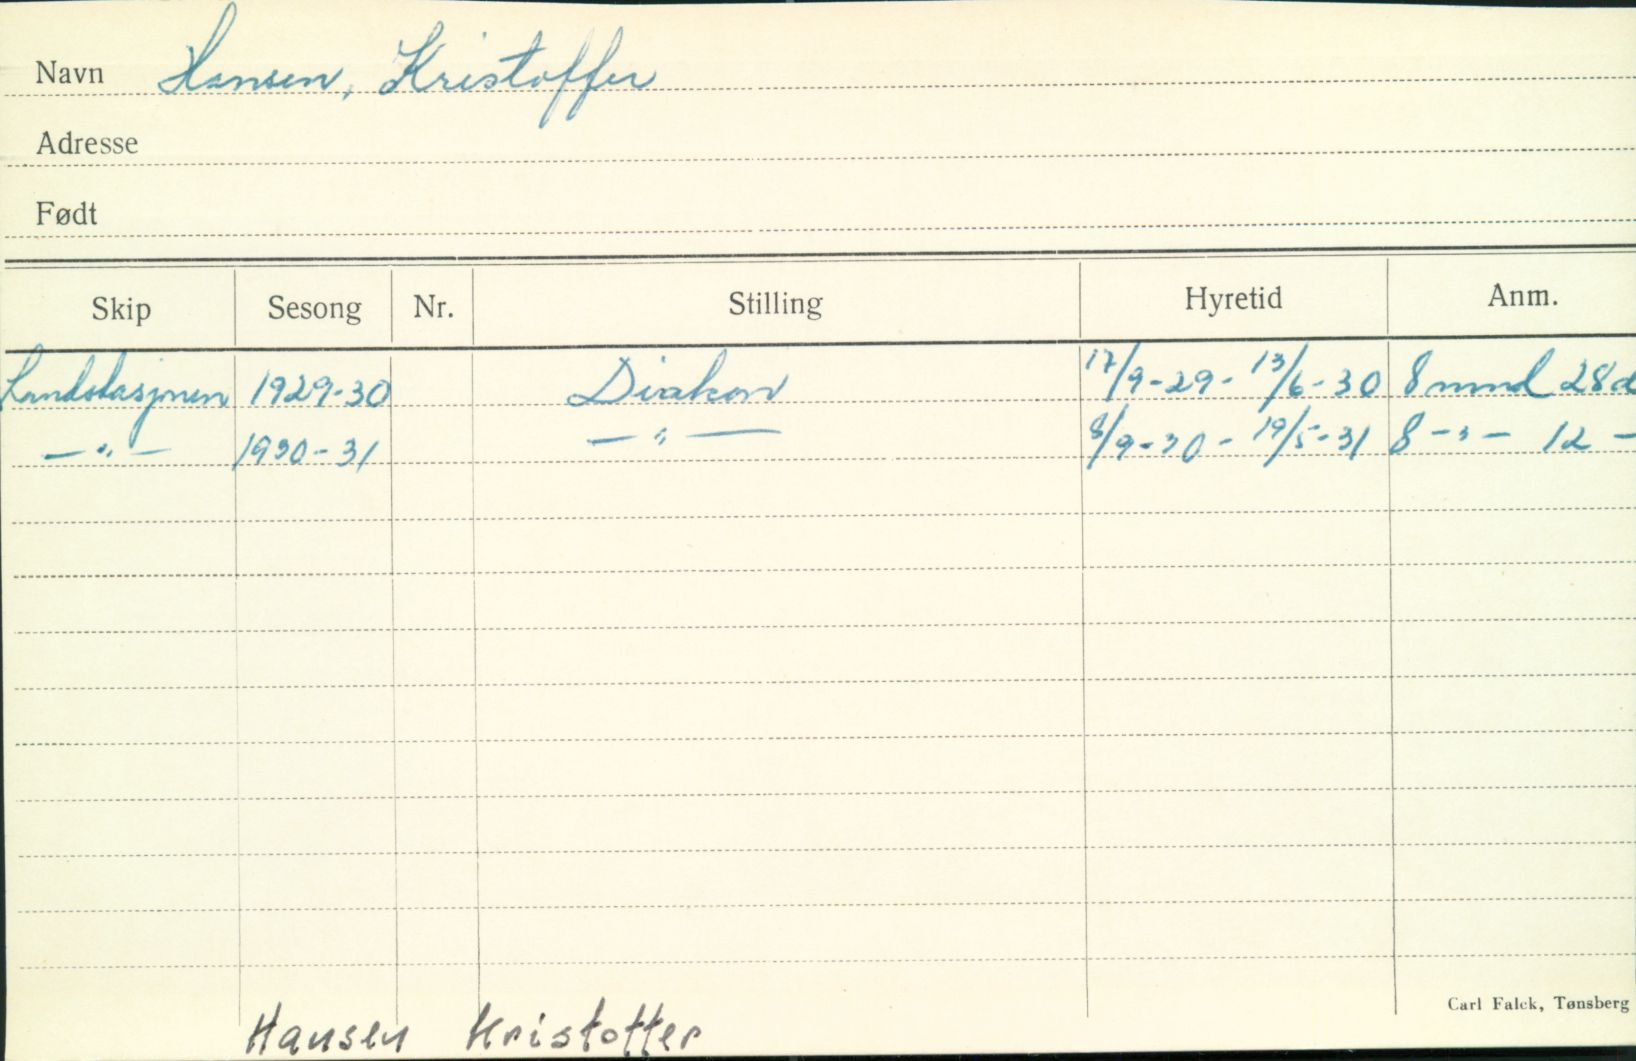 Navn Hansen, Kristoffer
Adresse
Født
Skip Sesong Nr. Stilling Hyretid Anm.
Landstasjonen 1929-30 Diakon 17/9-29- 13/6-30 8 mnd 28 d
— " — 1930-31 — " — 8/9-30 - 19/5-31 8 - " - 12 -
Carl Falck, Tønsberg
Hansen Kristoffer